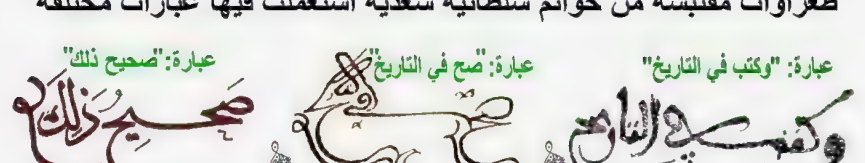 طغراوات مقتبسة من خواتم سلطانية سعدية استعملت فيها عبارات مختلفة
عبارة: "وكتب في التاريخ" عبارة: "صح في التاريخ" عبارة: "صحيح ذلك"
وكتب في التاريخ صح في صحيح ذلك